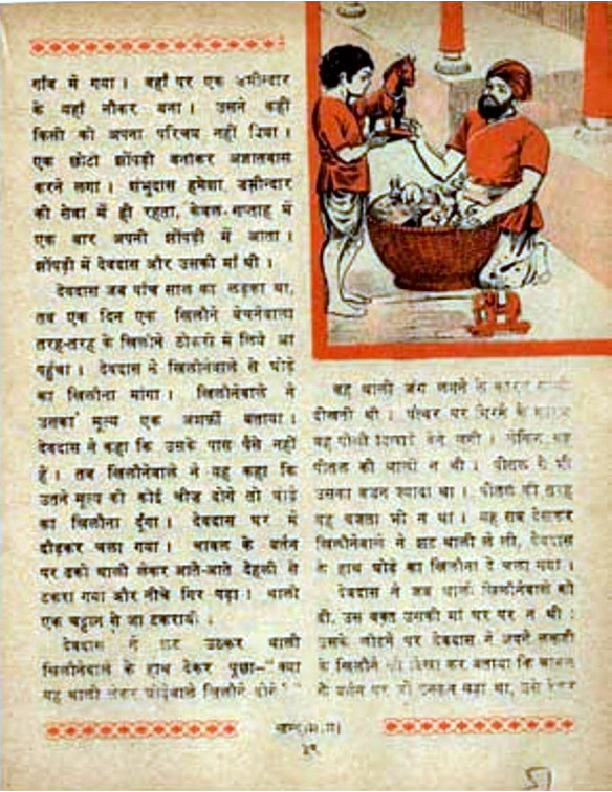 गाँव में गया। वहाँ पर एक ज़मीन्दार
के यहाँ नौकर बना। उसने कहीं
किसी को अपना परिचय नहीं दिया।
एक छोटी झोंपड़ी बनाकर अज्ञातवास
करने लगा। शंभुदास हमेशा ज़मीन्दार
की सेवा में ही रहता, केवल सप्ताह में
एक बार अपनी झोंपड़ी में आता।
झोंपड़ी में देवदास और उसकी माँ थी।
देवदास जब पाँच साल का लड़का था,
तब एक दिन एक खिलौने बेचनेवाला
तरह-तरह के खिलौने टोकरी में लिये आ
पहुँचा। देवदास ने खिलौनेवाले से घोड़े
का खिलौना मांगा। खिलौनेवाले ने
उसका मूल्य एक अशर्फी बताया।
देवदास ने कहा कि उसके पास पैसे नहीं
हैं। तब खिलौनेवाले ने यह कहा कि
उतने मूल्य की कोई चीज दोगे तो घोड़े
का खिलौना दूँगा। देवदास घर में
दौड़कर चला गया। चावल के बर्तन
पर ढकी थाली लेकर आते-आते देहली से
टकरा गया और नीचे गिर पड़ा। थाली
एक चट्टान से जा टकरायी।
देवदास ने झट उठकर थाली
खिलौनेवाले के हाथ देकर पूछा-"क्या
यह थाली लेकर घोड़ेवाले खिलौने दोगे?"
वह थाली जंग लगने के कारण
दीखती थी। पत्थर पर गिरने के कारण
वह पीली दिखाई देने लगी। लेकिन वह
पीतल की थाली न थी। पीतल से भी
उसका वजन ज्यादा था। पीतल की तरह
वह बजता भी न था। यह सब देखकर
खिलौनेवाले ने झट थाली ले ली, देवदास
के हाथ घोड़े का खिलौना दे चला गया।
देवदास ने जब थाली खिलौनेवाले को
दी, उस वक्त उसकी माँ घर पर न थी।
उसके लौटने पर देवदास ने अपने
के खिलौने को दिखा कर बताया कि चावल
के बर्तन पर जो ढक्कन पड़ा था, उसे देकर
चन्दामामा
51